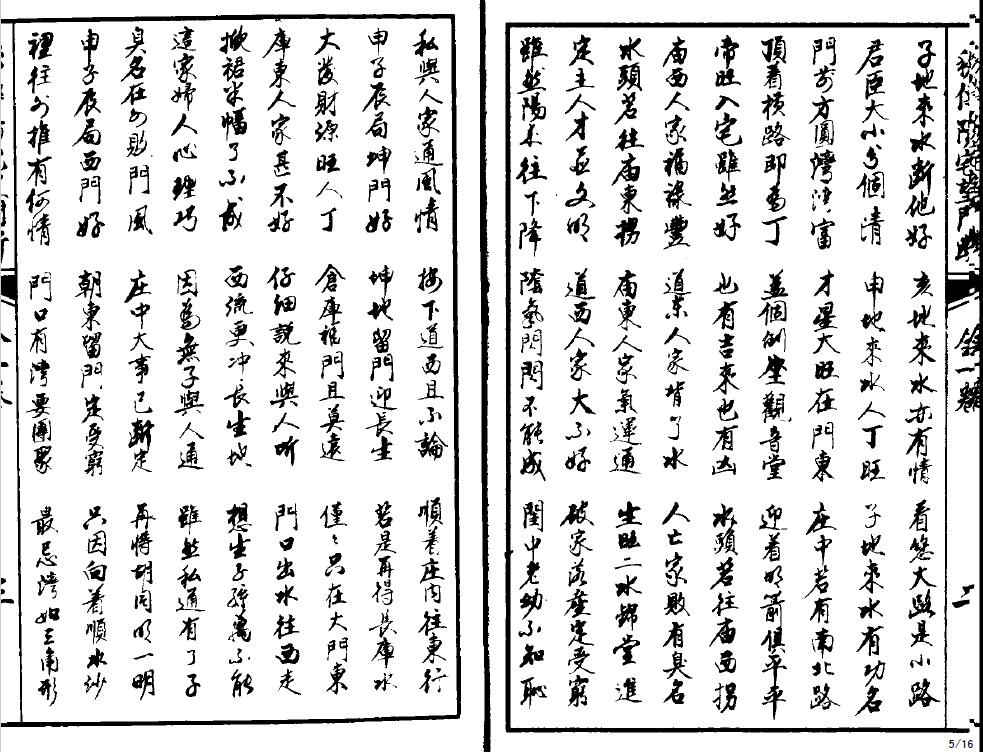 子地來水斷他好 亥地來水亦有情 看您大路是小路
君臣大小分個清 申地來水人丁旺 子地來水有功名
門前方圓灣灣富 才星大旺在門東 庄中若有南北路
頂着橫路即為丁 蓋個倒坐觀音堂 迎着明箭俱平平
帝旺入宅雖然好 也有吉來也有凶 水頭若往廟西拐
廟西人家福祿豐 道東人家背了水 人亡家敗有臭名
水頭若往廟東拐 廟東人家氣運通 生旺二水歸堂進
定主人才並文明 道西人家大不好 破家落產定受窮
雖然陽未往下降 陰氣悶悶不能成 閨中老幼不知恥
私與人家通風情 按下道西且不論 順着庄內往東行
申子辰局坤門好 坤地留門迎長生 若是再得長庫水
大發財源旺人丁 倉庫在門且莫遠 僅僅只在大門東
庫東人家甚不好 仔細說來與人听 門口出水往西走
掀裙半幅了不成 西流更冲長生地 想生子孫萬不能
這家婦人心理巧 因為無子與人通 雖然私通有了子
臭名在外敗門風 庄中大事已斷定 再將胡同明一明
申子辰局西門好 朝東留門定受窮 只因向着順水紗
裡往外推有何情 門口有灣要團聚 最忌灣如三角形
二
三
5/16